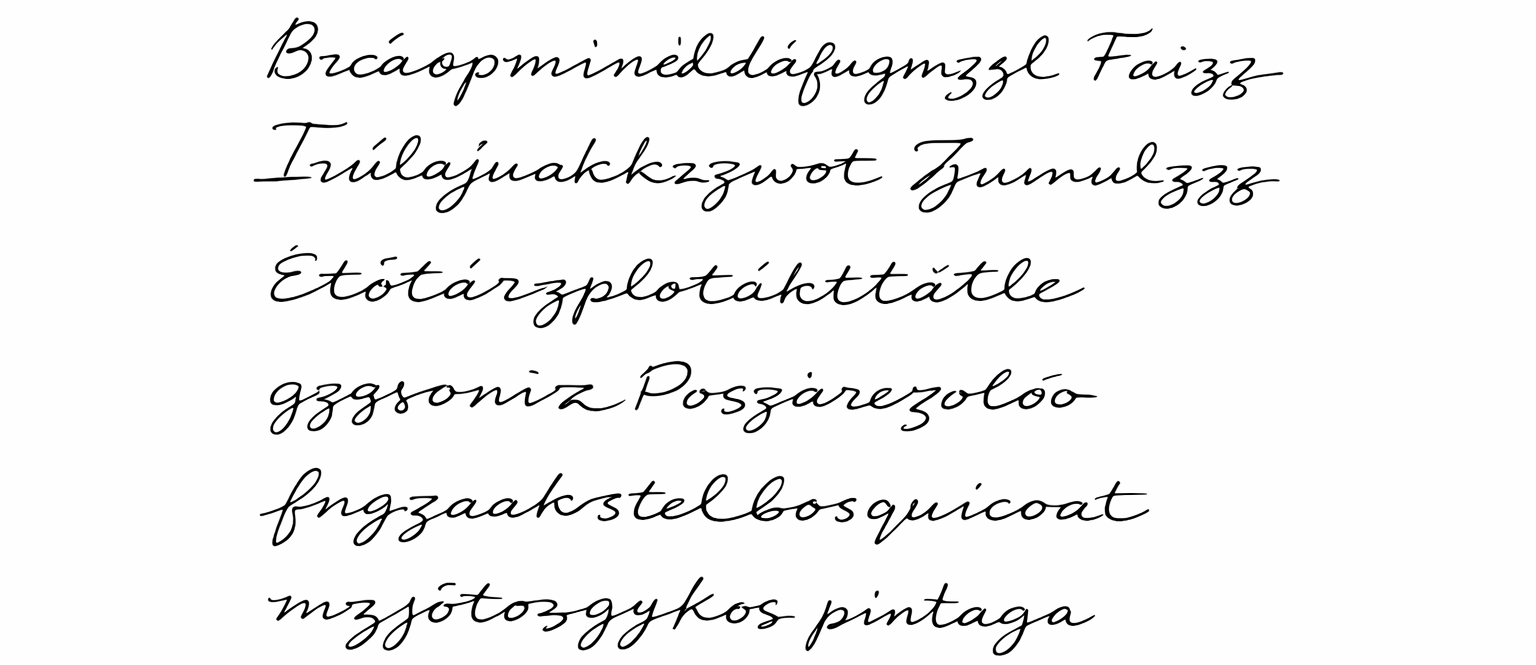 Brcáopminèddáfugmzzl Faizz
Irúlajuakkzzwot Zjumulzzz
Étótárzplotákttătle
gzgsoniz Poszàrezolóo
fngzaakstelbosquicoat
mzjōtozgykos pintaga